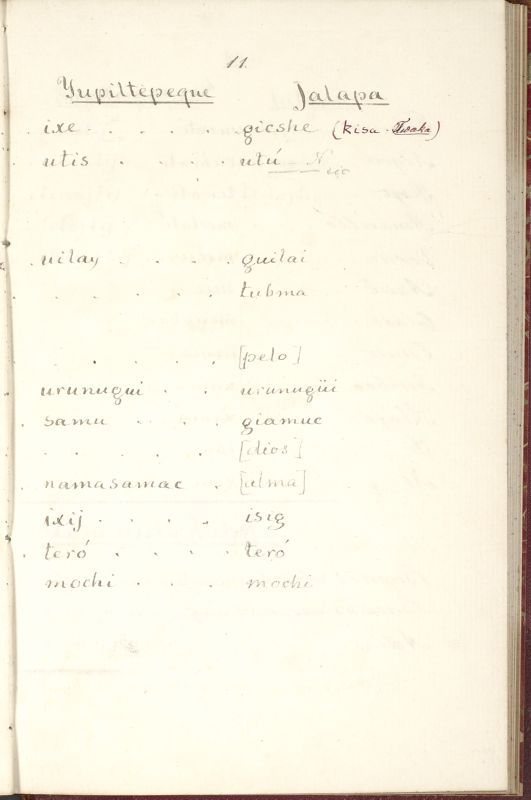 11
Yupiltepeque Jalapa
ixe . . . . gicshe (kisa - Twaka)
utis . . . . utú
uilay . . . . guilai
. . . . . . tubma
. . . . . [pelo]
urunugui . . urunugüi
samu . . . . giamuc
. . . . . . [dios]
namasamac . [alma]
ixij . . . . isig
teró . . . . teró
mochi . . . mochi